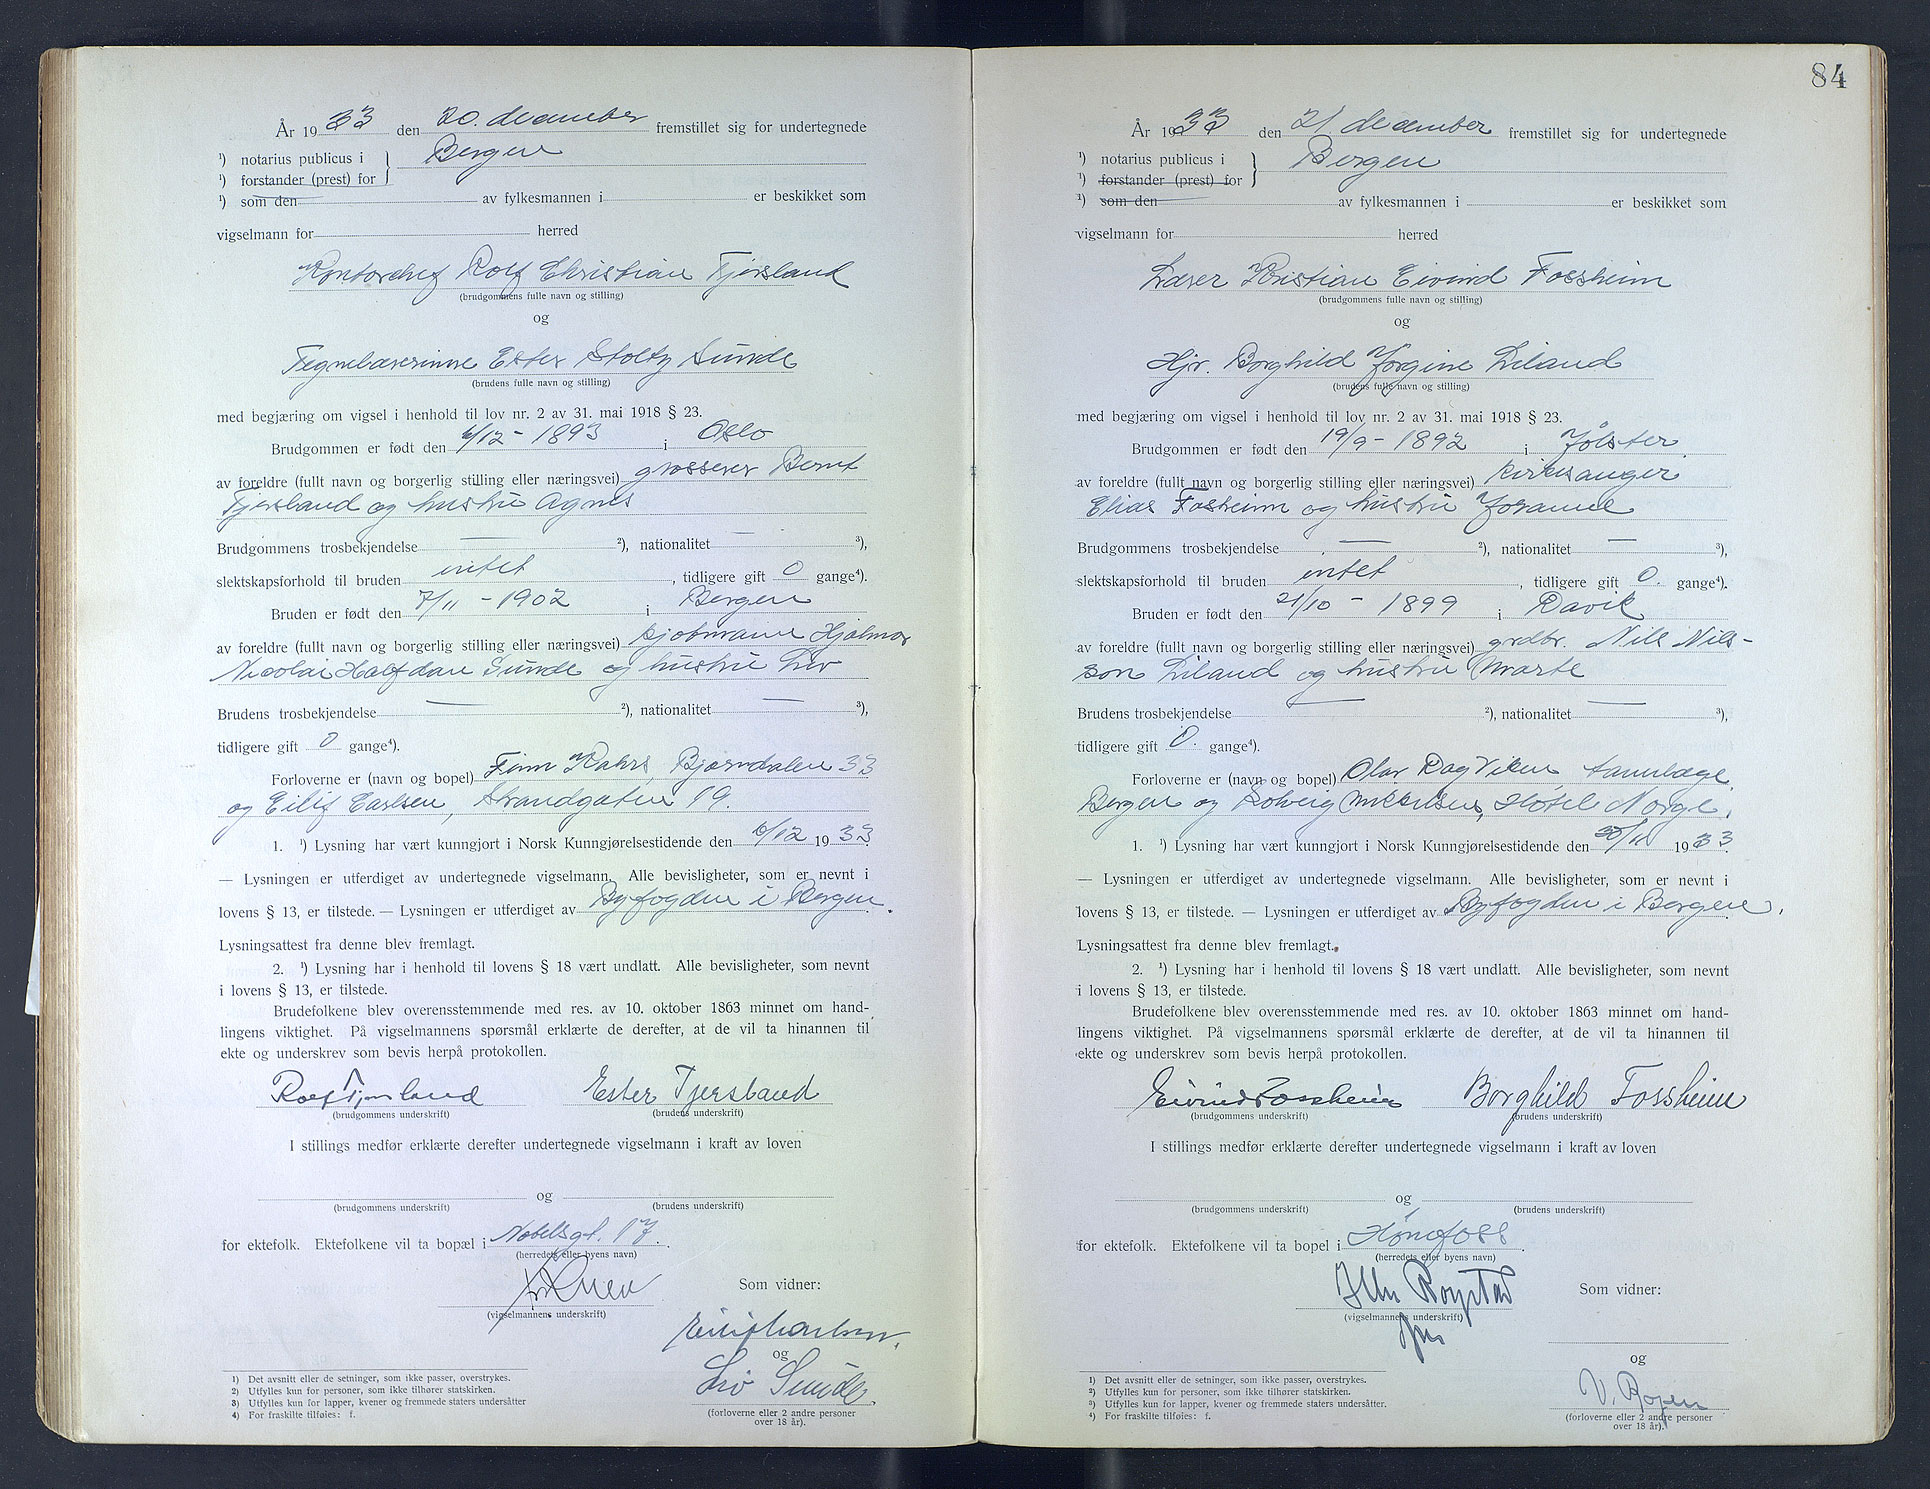 År 19 33 den 20. december fremstillet sig for undertegnede
¹) notarius publicus i } Bergen
¹) forstander (prest) for
¹) som den av fylkesmannen i er beskikket som
vigselmann for herred
Kontorchef Rolf Christian Tjersland
(brudgommens fulle navn og stilling)
og
Tegnelærerinne Ester Stoltz Sunde
(brudens fulle navn og stilling)
med begjæring om vigsel i henhold til lov nr. 2 av 31. mai 1918 § 23.
Brudgommen er født den 6/12 - 1893 i Oslo
av foreldre (fullt navn og borgerlig stilling eller næringsvei) grosserer Bernt
Tjersland og hustru Agnes
Brudgommens trosbekjendelse — ²), nationalitet — ³),
slektskapsforhold til bruden intet, tidligere gift 0 gange⁴).
Bruden er født den 7/11 - 1902 i Bergen
av foreldre (fullt navn og borgerlig stilling eller næringsvei) kjøbmann Hjalmar
Nicolai Halfdan Sunde og hustru
Brudens trosbekjendelse — ²), nationalitet — ³),
tidligere gift 0 gange⁴).
Forloverne er (navn og bopel) Finn Kahrs, Bjørndalen 33
og Eilif Carlsen, Strandgaten 19.
1. ¹) Lysning har vært kunngjort i Norsk Kunngjørelsestidende den 6/12 19 33.
— Lysningen er utferdiget av undertegnede vigselmann. Alle bevisligheter, som er nevnt i
lovens § 13, er tilstede. — Lysningen er utferdiget av Byfogden i Bergen.
Lysningsattest fra denne blev fremlagt.
2. ¹) Lysning har i henhold til lovens § 18 vært undlatt. Alle bevisligheter, som nevnt
i lovens § 13, er tilstede.
Brudefolkene blev overensstemmende med res. av 10. oktober 1863 minnet om hand-
lingens viktighet. På vigselmannens spørsmål erklærte de derefter, at de vil ta hinannen til
ekte og underskrev som bevis herpå protokollen.
Rolf Tjersland Ester Tjersland
(brudgommens underskrift) (brudens underskrift)
I stillings medfør erklærte derefter undertegnede vigselmann i kraft av loven
og
(brudgommens underskrift) (brudens underskrift)
for ektefolk. Ektefolkene vil ta bopæl i Nobelsgt. 17.
(herredets eller byens navn)
Som vidner:
(vigselmannens underskrift)
Eilif Carlsen.
og
Sunde.
(forloverne eller 2 andre personer
over 18 år).
1) Det avsnitt eller de setninger, som ikke passer, overstrykes.
2) Utfylles kun for personer, som ikke tilhører statskirken.
3) Utfylles kun for lapper, kvener og fremmede staters undersåtter
4) For fraskilte tilføies: f.
84
År 19 33 den 21. december fremstillet sig for undertegnede
¹) notarius publicus i } Bergen
¹) forstander (prest) for
¹) som den av fylkesmannen i er beskikket som
vigselmann for herred
Lærer Kristian Eivind Fossheim
(brudgommens fulle navn og stilling)
og
Hjr. Borghild Jorgine Liland
(brudens fulle navn og stilling)
med begjæring om vigsel i henhold til lov nr. 2 av 31. mai 1918 § 23.
Brudgommen er født den 19/9 - 1892 i Jølster.
av foreldre (fullt navn og borgerlig stilling eller næringsvei) kirkesanger
Elias Fosheim og hustru
Brudgommens trosbekjendelse — ²), nationalitet — ³),
slektskapsforhold til bruden intet, tidligere gift 0. gange⁴).
Bruden er født den 21/10 - 1899 i Davik
av foreldre (fullt navn og borgerlig stilling eller næringsvei) grdbr. Nils Nils-
son Liland og hustru Marte
Brudens trosbekjendelse — ²), nationalitet — ³),
tidligere gift 0. gange⁴).
Forloverne er (navn og bopel) Olav Dag Viken tannlæge
Bergen og Solveig Mikkelsen, Hotel Norge.
1. ¹) Lysning har vært kunngjort i Norsk Kunngjørelsestidende den 30/11 19 33.
— Lysningen er utferdiget av undertegnede vigselmann. Alle bevisligheter, som er nevnt i
lovens § 13, er tilstede. — Lysningen er utferdiget av Byfogden i Bergen.
Lysningsattest fra denne blev fremlagt.
2. ¹) Lysning har i henhold til lovens § 18 vært undlatt. Alle bevisligheter, som nevnt
i lovens § 13, er tilstede.
Brudefolkene blev overensstemmende med res. av 10. oktober 1863 minnet om hand-
lingens viktighet. På vigselmannens spørsmål erklærte de derefter, at de vil ta hinannen til
ekte og underskrev som bevis herpå protokollen.
Eivind Fossheim Borghild Fossheim
(brudgommens underskrift) (brudens underskrift)
I stillings medfør erklærte derefter undertegnede vigselmann i kraft av loven
og
(brudgommens underskrift) (brudens underskrift)
for ektefolk. Ektefolkene vil ta bopel i Hønefoss.
(herredets eller byens navn)
Som vidner:
(vigselmannens underskrift)
og
V.
(forloverne eller 2 andre personer
over 18 år).
1) Det avsnitt eller de setninger, som ikke passer, overstrykes.
2) Utfylles kun for personer, som ikke tilhører statskirken.
3) Utfylles kun for lapper, kvener og fremmede staters undersåtter.
4) For fraskilte tilføies: f.